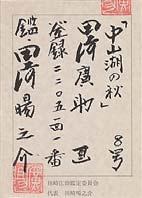 「中山湖の秋」
8号
田崎廣助 画
登録二二〇五一四一番
鑑・田崎暘之介
田崎広助鑑定委員会
代表 田崎暘之介